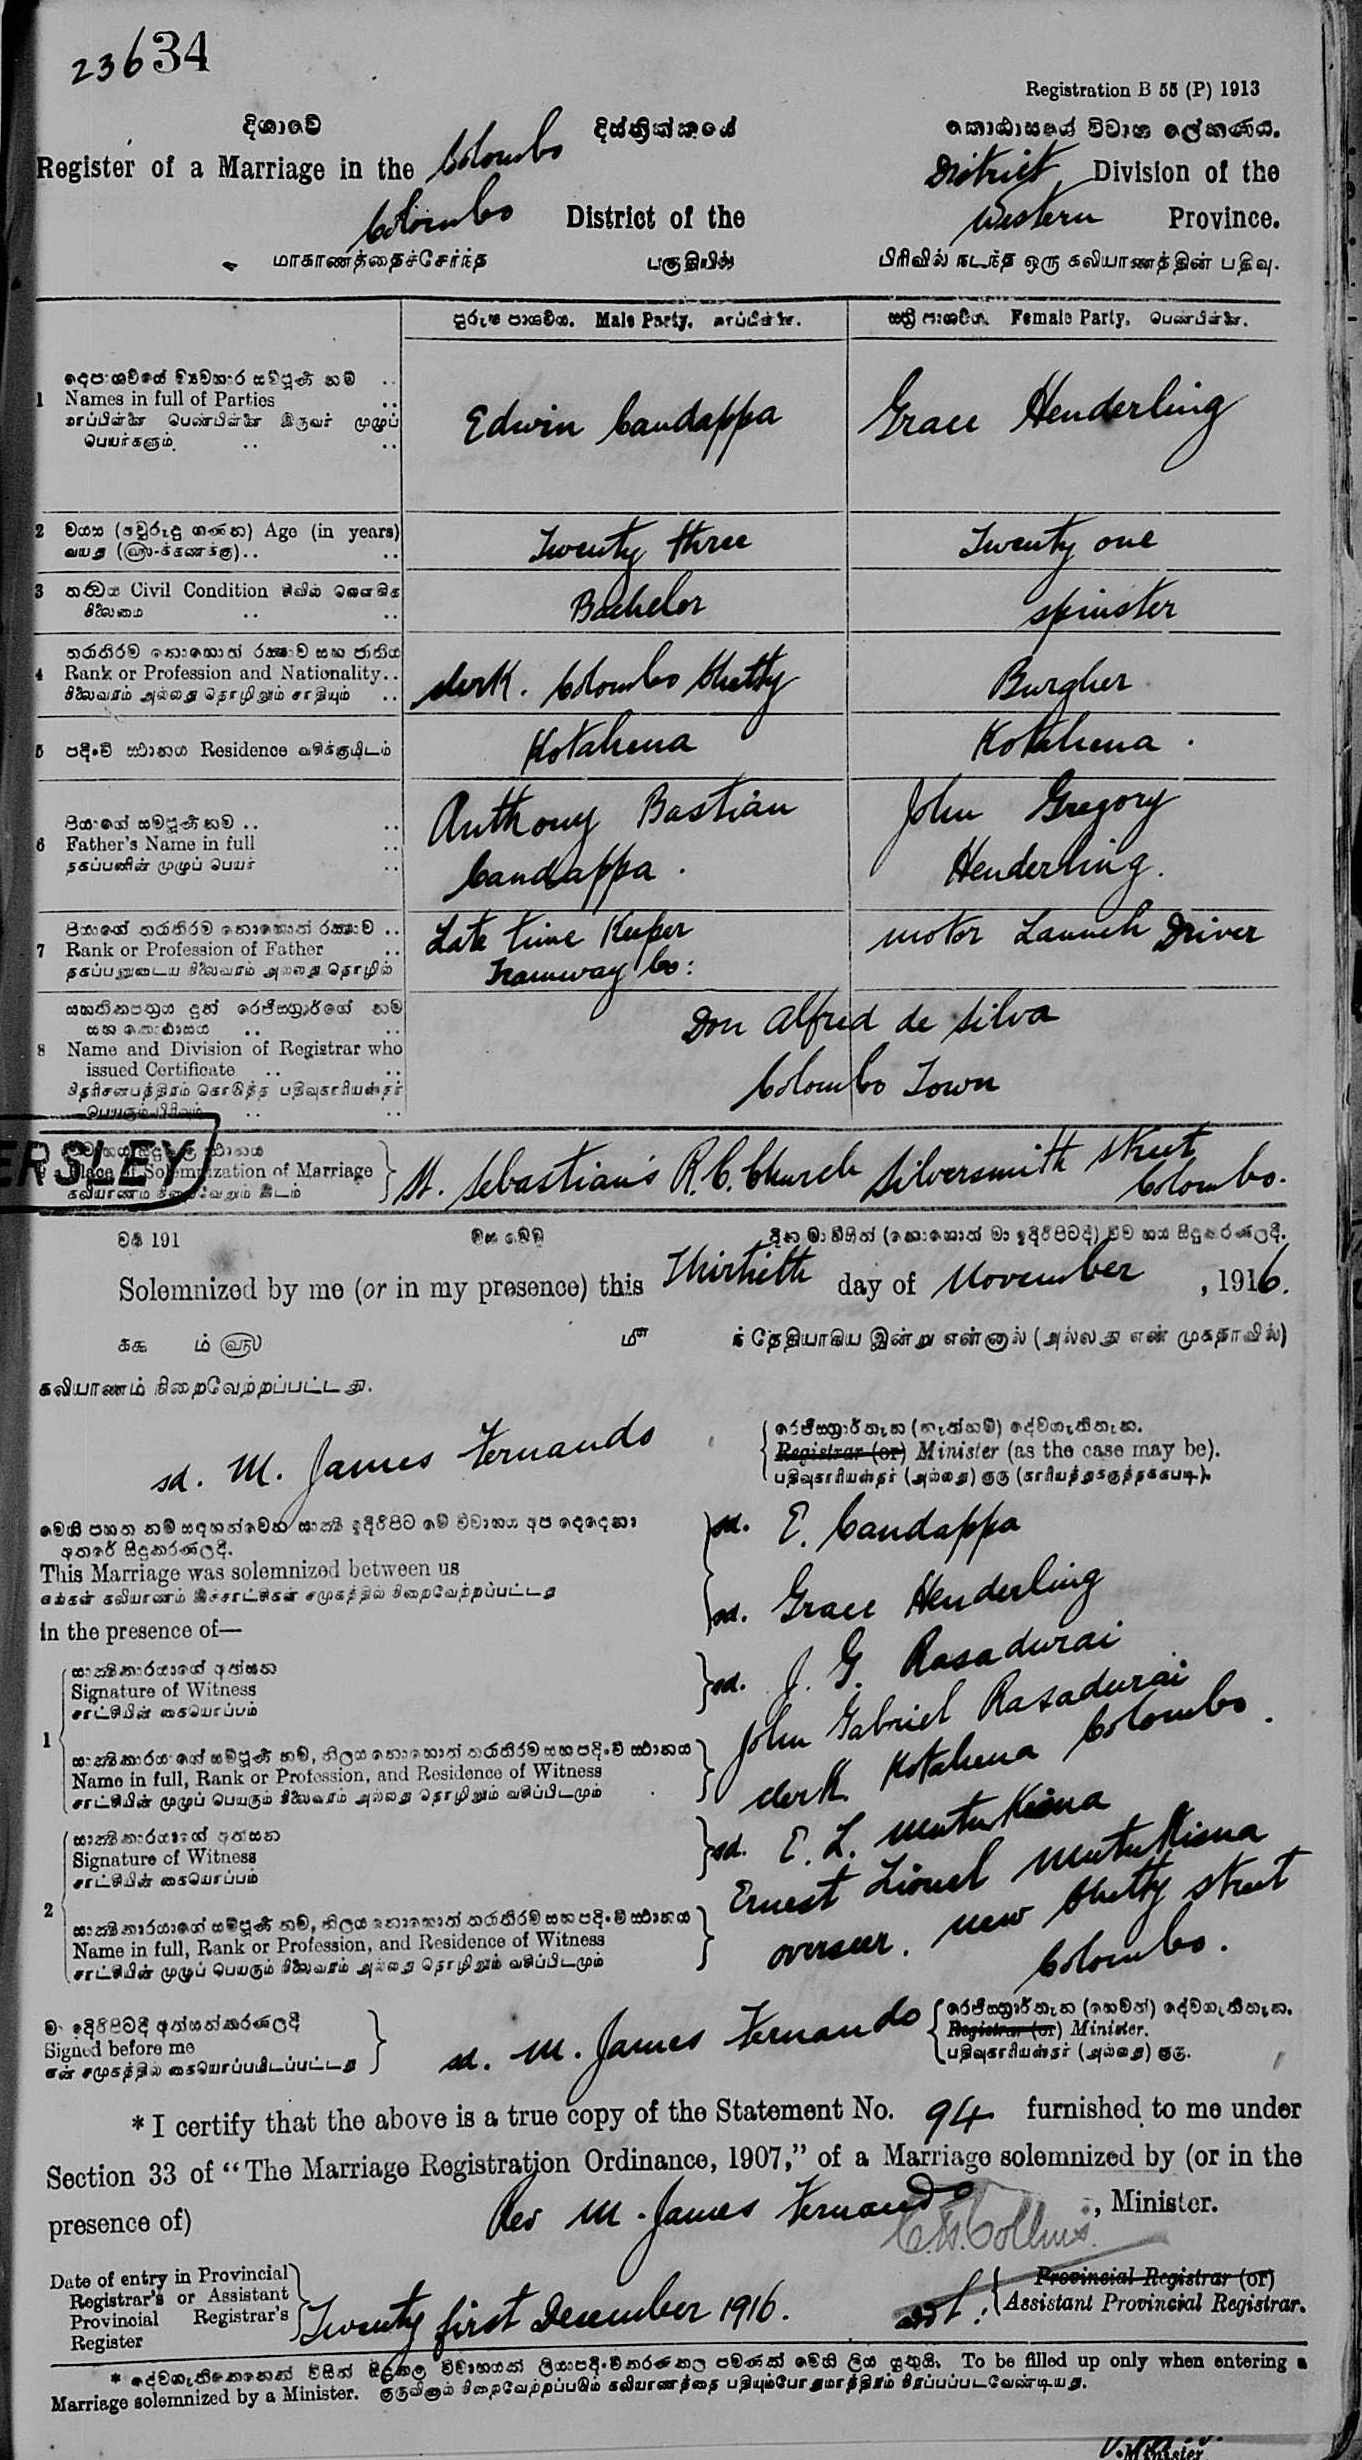 23634
Registration B 55 (P) 1913
දිශාවේ දිස්ත්‍රික්කයේ කොඨාසයේ විවාහ ලේකණය.
Register of a Marriage in the Colombo District Division of the
Colombo District of the Western Province.
மாகாணத்தைச்சேர்ந்த பகுதியில் பிரிவில் நடந்த ஒரு கலியாணத்தின் பதிவு.
පුරුෂ පාශවීය. Male Party. மாப்பிள்ளை. ස්ත්‍රී පාශවීය. Female Party. பெண்பிள்ளை.
1 Names in full of Parties
மாப்பிள்ளை பெண்பிள்ளை இருவர் முழுப்
பெயர்களும்
Edwin Candappa Grace Henderling
2 වයස (අවුරුදු ගණන) Age (in years)
Twenty three Twenty one
3 Civil Condition
நிலைமை
Bachelor Spinster
4 Rank or Profession and Nationality
நிலைவரம் அல்லது தொழிலும் சாதியும்
Clerk. Colombo Chetty Burgher
5 පදිංචි ස්ථානය Residence வசிக்குமிடம்
Kotahena Kotahena.
6 පියාගේ සම්පූර්ණ නම
Father's Name in full
தகப்பனின் முழுப் பெயர்
Anthony Bastian John Gregory
Candappa. Henderling.
7 Rank or Profession of Father
தகப்பனுடைய நிலைவரம் அல்லது தொழில்
Late time Keeper motor Launch Driver
Tramway Co:
8 Name and Division of Registrar who
issued Certificate
Don Alfred de Silva
Colombo Town
ERSLEY
Place of Solemnization of Marriage
கலியாணம் நிறைவேறும் இடம்
St. Sebastian's R. C. Church Silversmith Street
Colombo.
වර්‍ෂ 191
Solemnized by me (or in my presence) this Thirtieth day of November, 1916.
ந் தேதியாகிய இன்று என்னால் (அல்லது என் முகதாவில்)
கலியாணம் நிறைவேற்றப்பட்டது.
sd. M. James Fernando
Registrar (or) Minister (as the case may be).
This Marriage was solemnized between us
எங்கள் கலியாணம் இச்சாட்சிகள் சமுகத்தில் நிறைவேற்றப்பட்டது
in the presence of—
sd. E. Candappa
sd. Grace Henderling
1 Signature of Witness
சாட்சியின் கையொப்பம்
sd. J. G. Rasadurai
Name in full, Rank or Profession, and Residence of Witness
சாட்சியின் முழுப் பெயரும் நிலைவரம் அல்லது தொழிலும் வசிப்பிடமும்
John Gabriel Rasadurai
Clerk Kotahena Colombo.
2 Signature of Witness
சாட்சியின் கையொப்பம்
sd. E. L. Mutukisna
Name in full, Rank or Profession, and Residence of Witness
சாட்சியின் முழுப் பெயரும் நிலைவரம் அல்லது தொழிலும் வசிப்பிடமும்
Ernest Lionel Mutukisna
overseer. New Chetty Street
Colombo.
Signed before me
என் சமுகத்தில் கையொப்பமிடப்பட்டது
sd. M. James Fernando
Registrar (or) Minister.
பதிவுகாரியஸ்தர் (அல்லது) குரு.
* I certify that the above is a true copy of the Statement No. 94 furnished to me under
Section 33 of "The Marriage Registration Ordinance, 1907," of a Marriage solemnized by (or in the
presence of) Rev M. James Fernando, Minister.
Date of entry in Provincial
Registrar's or Assistant
Provincial Registrar's
Register
Twenty first December 1916.
Provincial Registrar (or)
Assistant Provincial Registrar.
To be filled up only when entering a
Marriage solemnized by a Minister.
Minister